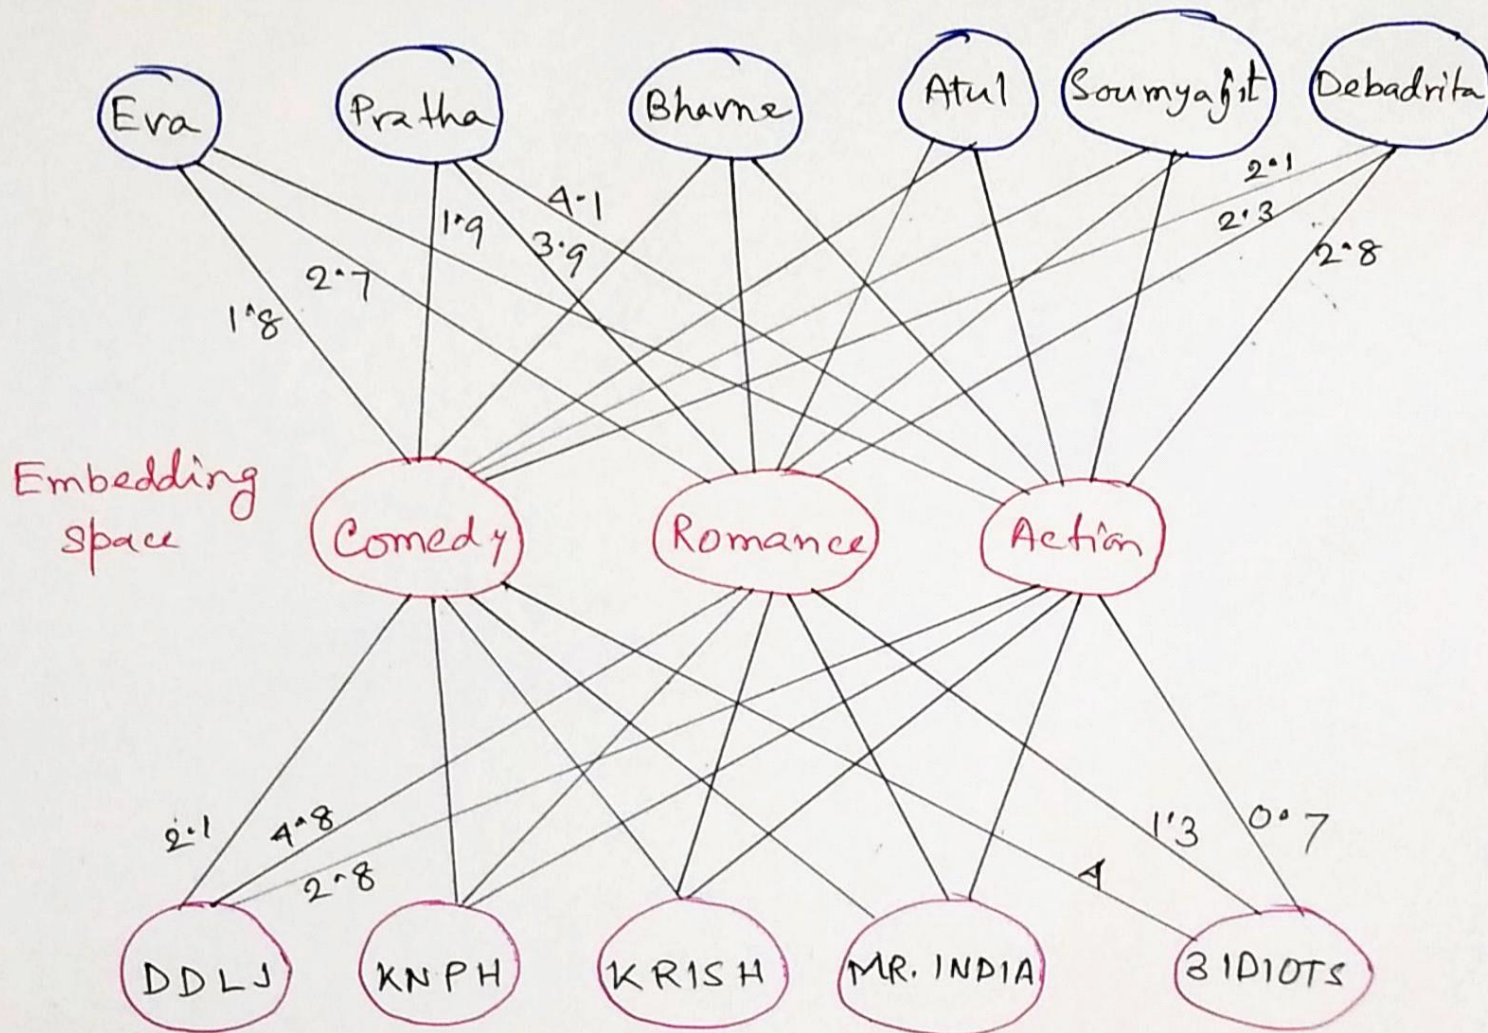 Eva
Pratha
Bhavne
Atul
Soumyajit
Debadrita
2.1
4.1
1.9
2.3
3.9
2.8
2.7
1.8
Embedding
space
Comedy
Romance
Action
2.1
4.8
1.3
0.7
2.8
4
DDLJ
KNPH
KRISH
MR. INDIA
3 IDIOTS